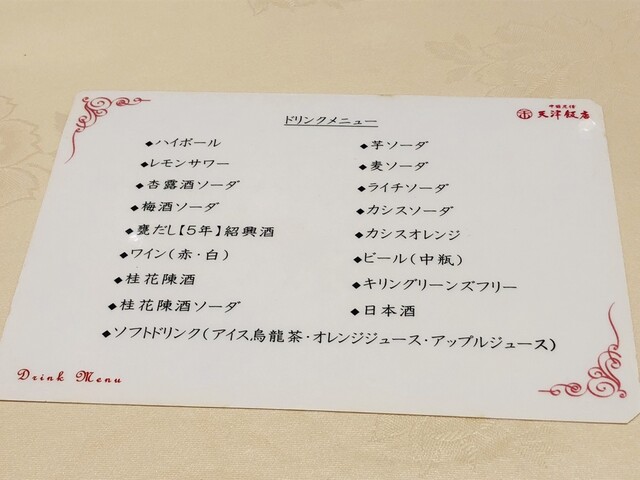 中国名僧
天津飯店
ドリンクメニュー
◆ハイボール
◆レモンサワー
◆杏露酒ソーダ
◆梅酒ソーダ
◆甕だし【5年】紹興酒
◆ワイン(赤・白)
◆桂花陳酒
◆桂花陳酒ソーダ
◆芋ソーダ
◆麦ソーダ
◆ライチソーダ
◆カシスソーダ
◆カシスオレンジ
◆ビール(中瓶)
◆キリングリーンズフリー
◆日本酒
◆ソフトドリンク(アイス烏龍茶・オレンジジュース・アップルジュース)
Drink Menu